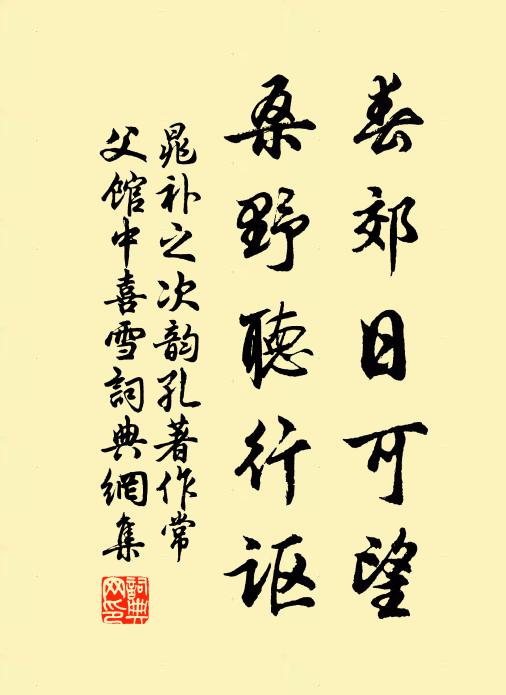 春郊日可望
桑野聽行謳
晁補之次韵孔著作常
父馆中喜雪詞典網集
詞典网印